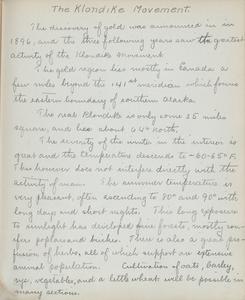 The Klondike Movement.
The discovery of gold was announced in in
1896, and the three following years saw the greatest
activity of the Klondike movement
The gold region lies mostly in Canada a
few miles beyond the 141st meridian which forms
the eastern boundary of southern Alaska.
The real Klondike is only some 25 miles
square, and lies about 64° north.
The severity of the winter in the interior is
great and the temperature descends to -60-65° F.
This however does not interfere directly with the
activity of man. The summer temperature is
very pleasant, often ascending to 80° and 90° with
long days and short nights. This long exposure
to sunlight has developed fine forests, mostly coni-
fers poplars and birches. There is also a great pro-
fusion of herbs, all of which support an extensive
animal population. Cultivation of oats, barley,
rye, vegetables, and a little wheat will be possible in
many sections.